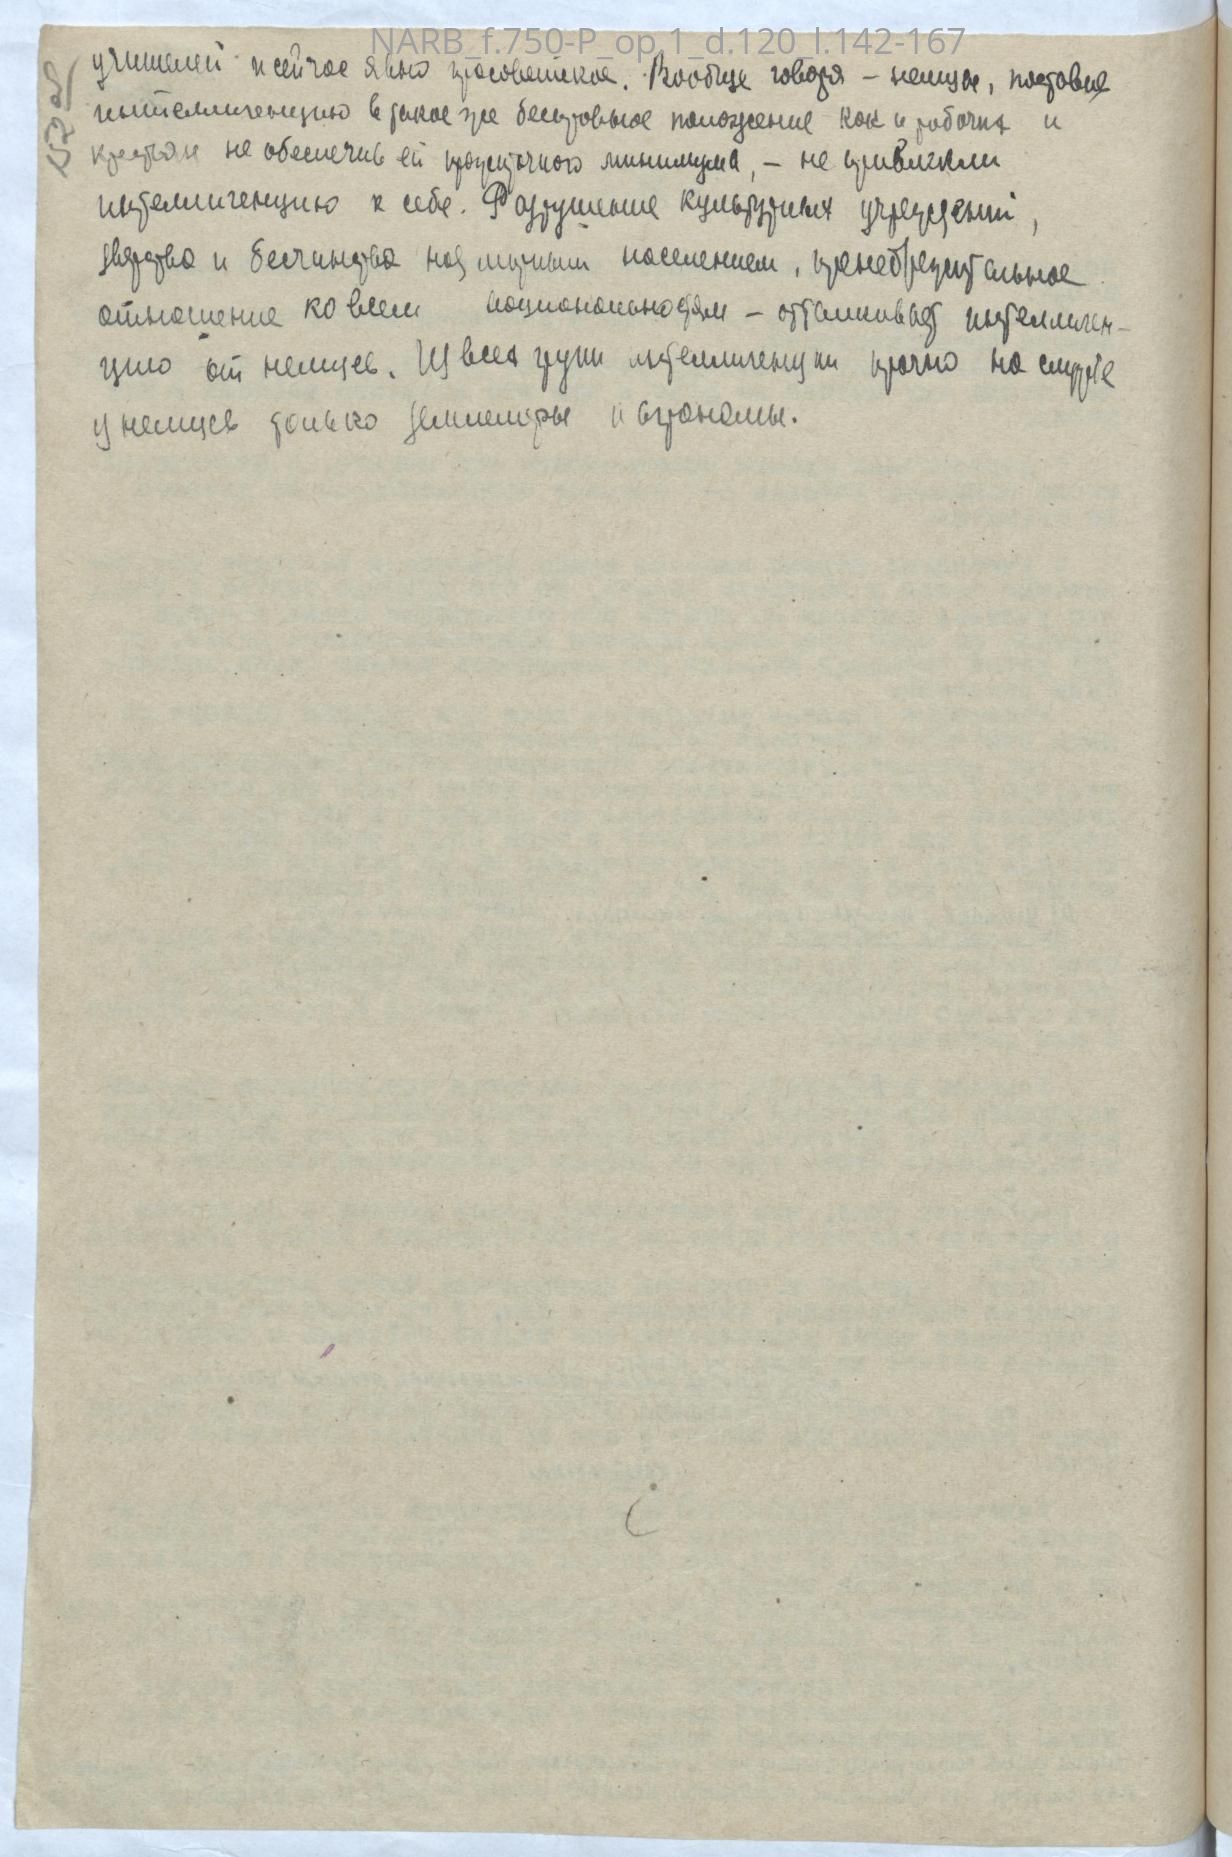 NARB_f.750-P_op.1_d.120_l.142-167
учителей и сейчас явно просоветское. Вообще говоря – немцы, поставив
интеллигенцию в такое же бесправное положение как и рабочих и
крестьян не обеспечив ей прожиточного минимума, – не привлекли
интеллигенцию к себе. Разрушение культурных учреждений,
зверства и бесчинства над мирным населением, пренебрежительное
отношение ко всем национальностям – отталкивает интеллиген-
цию от немцев. Из всех групп интеллигенции прочно на службе
у немцев только землемеры и агрономы.